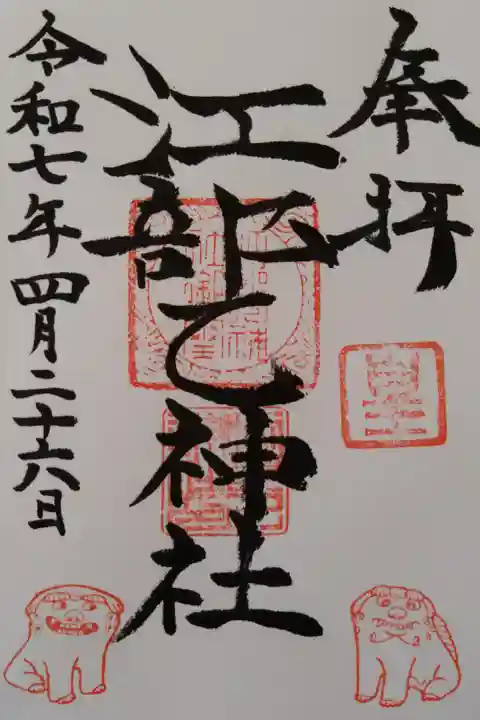 奉拝
江部乙神社
令和七年四月二十六日